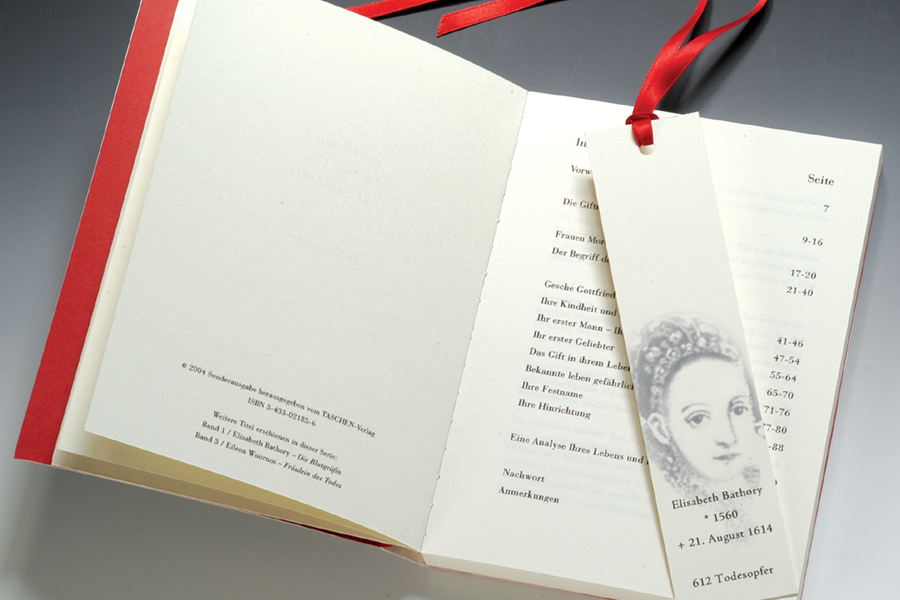 © 2004 Sonderausgabe herausgegeben vom TASCHEN-Verlag
ISBN 3-433-02185-6
Weitere Titel erschienen in dieser Serie:
Band 1 / Elisabeth Bathory – Die Blutgräfin
Band 3 / Eileen Wuornos – Fräulein des Todes
Seite
7
Die
9-16
Frauen
Der Begriff
17-20
21-40
Gesche Gottfried
Ihre Kindheit und
41-46
Ihr erster Mann –
47-54
Ihr erster Geliebter
55-64
Das Gift in ihrem
65-70
Bekannte leben
71-76
Ihre Festname
77-80
Ihre Hinrichtung
-88
Eine Analyse Ihres Lebens und
Nachwort
Anmerkungen
Elisabeth Bathory
* 1560
+ 21. August 1614
612 Todesopfer